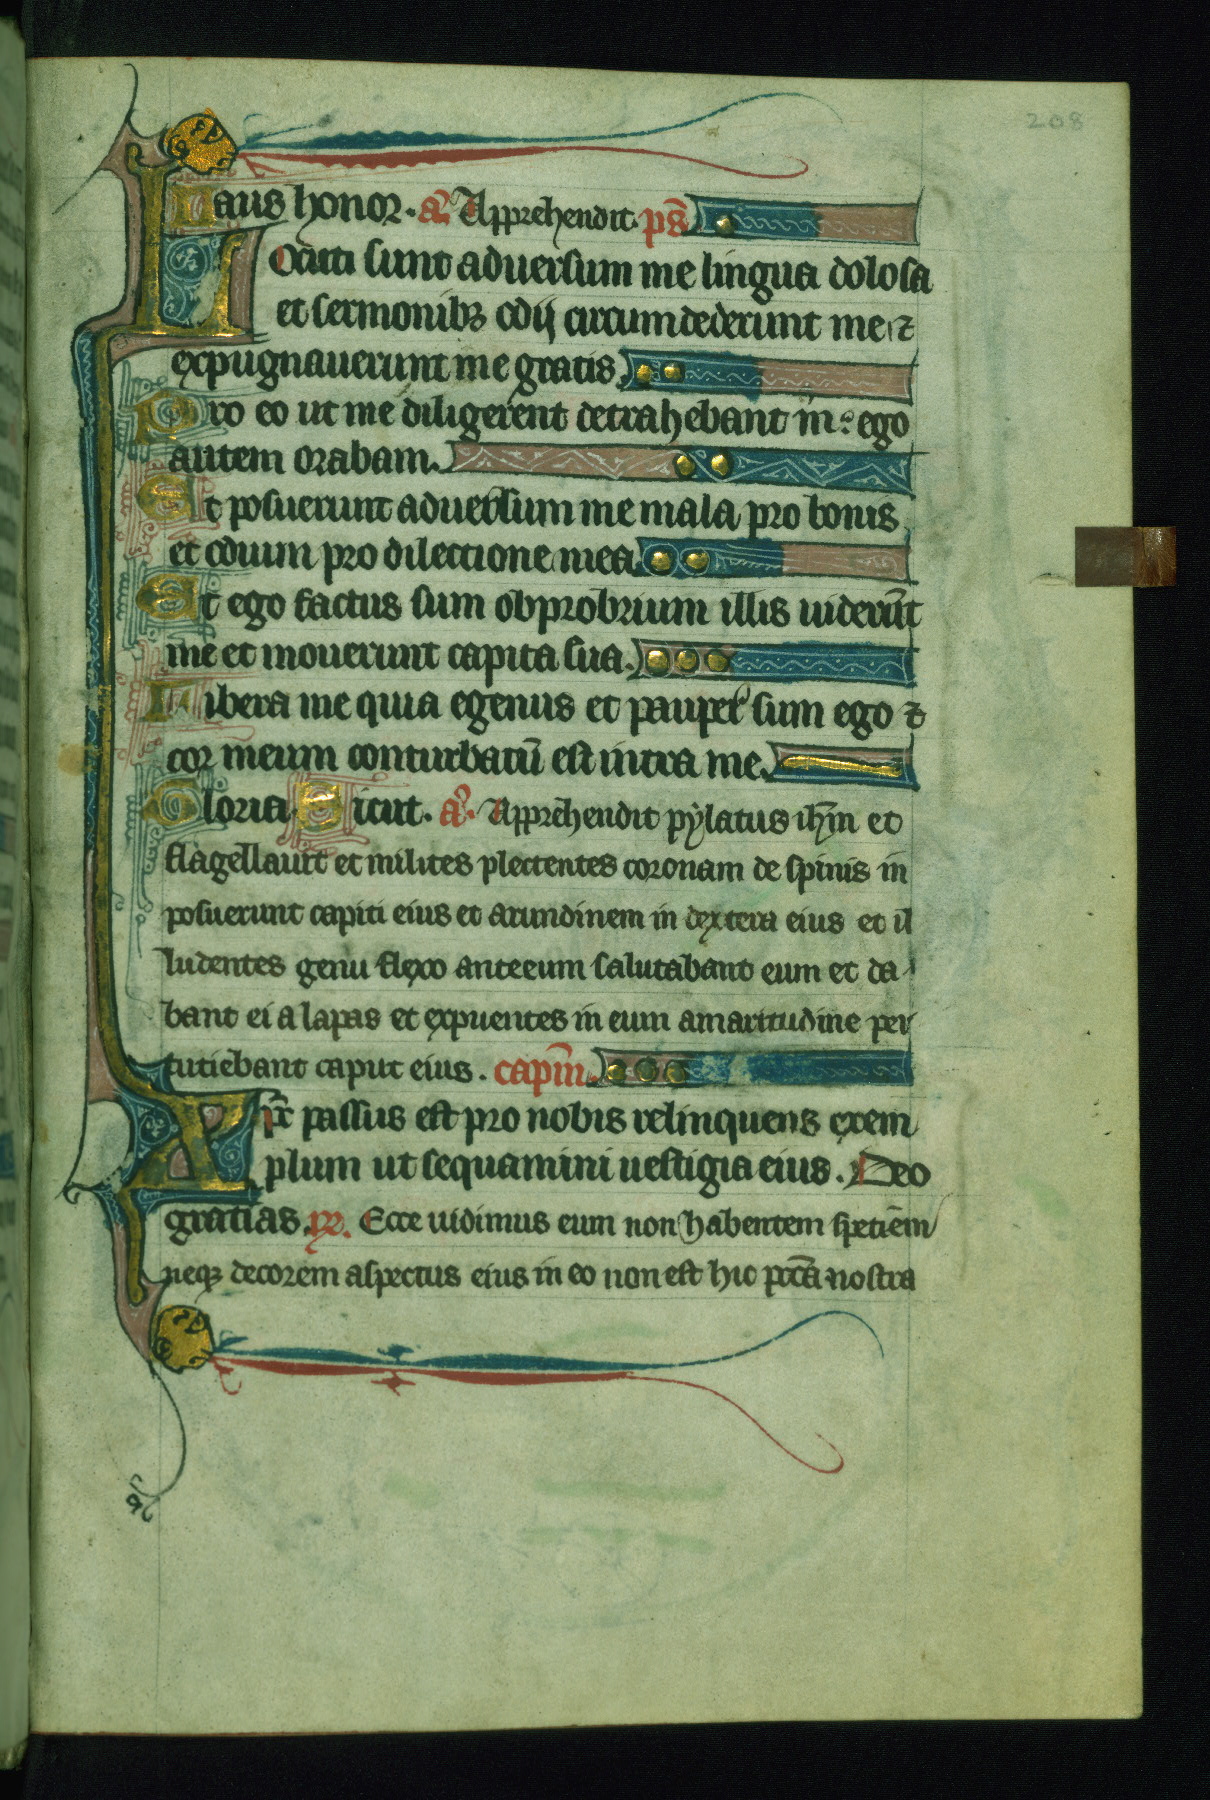 208
Laus honor. añ Apprehendit. ps̄
Locuti sunt aduersum me lingua dolosa
et sermonibꝫ odij circumdederunt me ⁊
expugnauerunt me gratis.
Pro eo ut me diligerent detrahebant m̄: ego
autem orabam.
Et posuerunt aduersum me mala pro bonis
et odium pro dilectione mea.
Et ego factus sum obprobrium illis uiderūt
me et mouerunt capita sua.
Libera me quia egenus et pauper sum ego ⁊
cor meum conturbatū est intra me.
Gloria Sicut. añ. Apprehendit pylatus ihm̄ et
flagellauit et milites plectentes coronam de spinis in
posuerunt capiti eius et arundinem in dextera eius et il
ludentes genu flexo ante eum salutabant eum et da
bant ei alapas et expuentes in eum amaritudine per
cutiebant caput eius. capm̄.
Xpc̄ passus est pro nobis relinquens exem
plum ut sequamini uestigia eius. Deo
gratias. ꝶ. Ecce uidimus eum non habentem spetiēm
neqꝫ decorem aspectus eius in eo non est hic pctā nostra